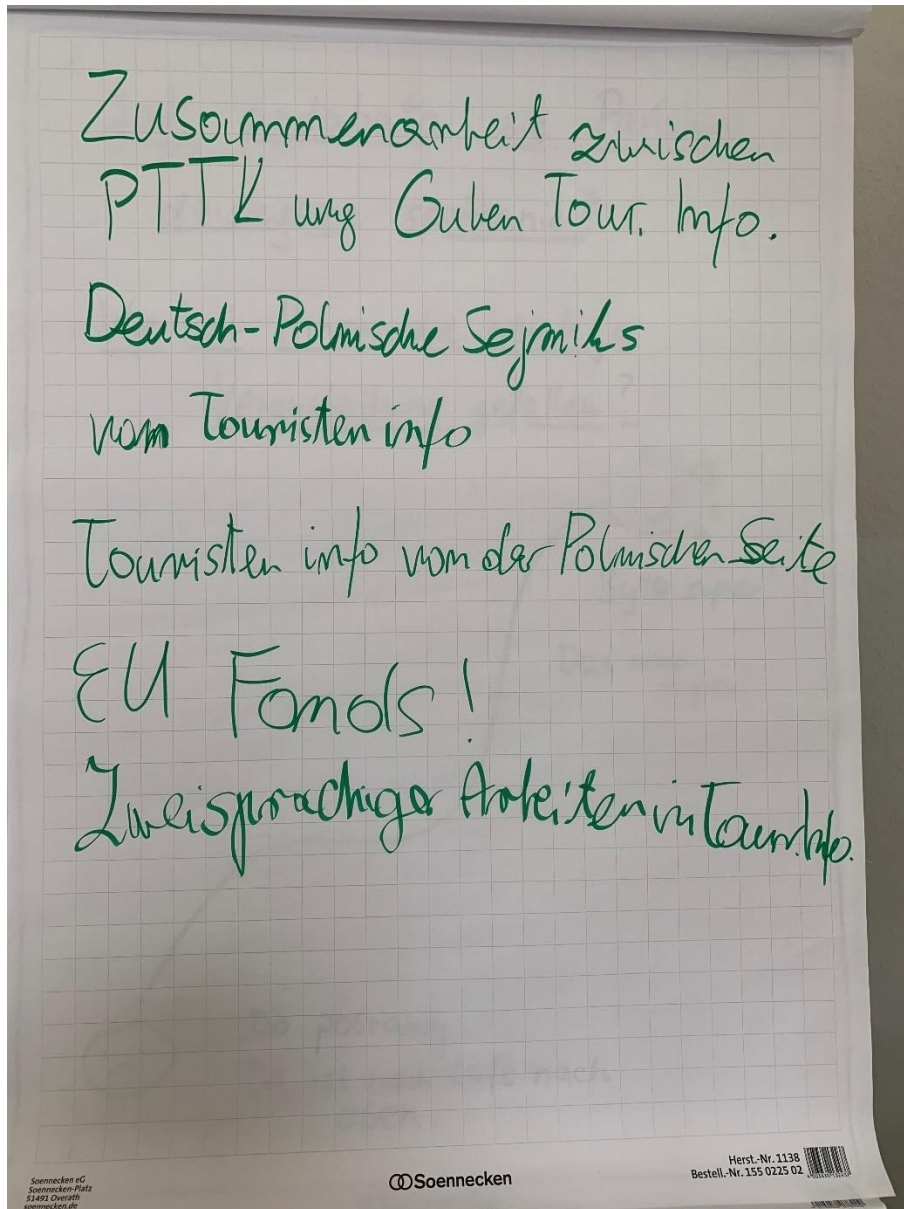 Zusammenarbeit zwischen
PTTK ung Guben Tour. Info.
Deutsch-Polnische Sejmiks
vom Touristen info
Touristen info von der Polnischen Seite
EU Fonds!
Zweisprachiger Arbeiten in Tour.Info.
Soennecken eG
Soennecken-Platz
51491 Overath
soennecken.de
Soennecken
Herst.-Nr. 1138
Bestell.-Nr. 155 0225 02